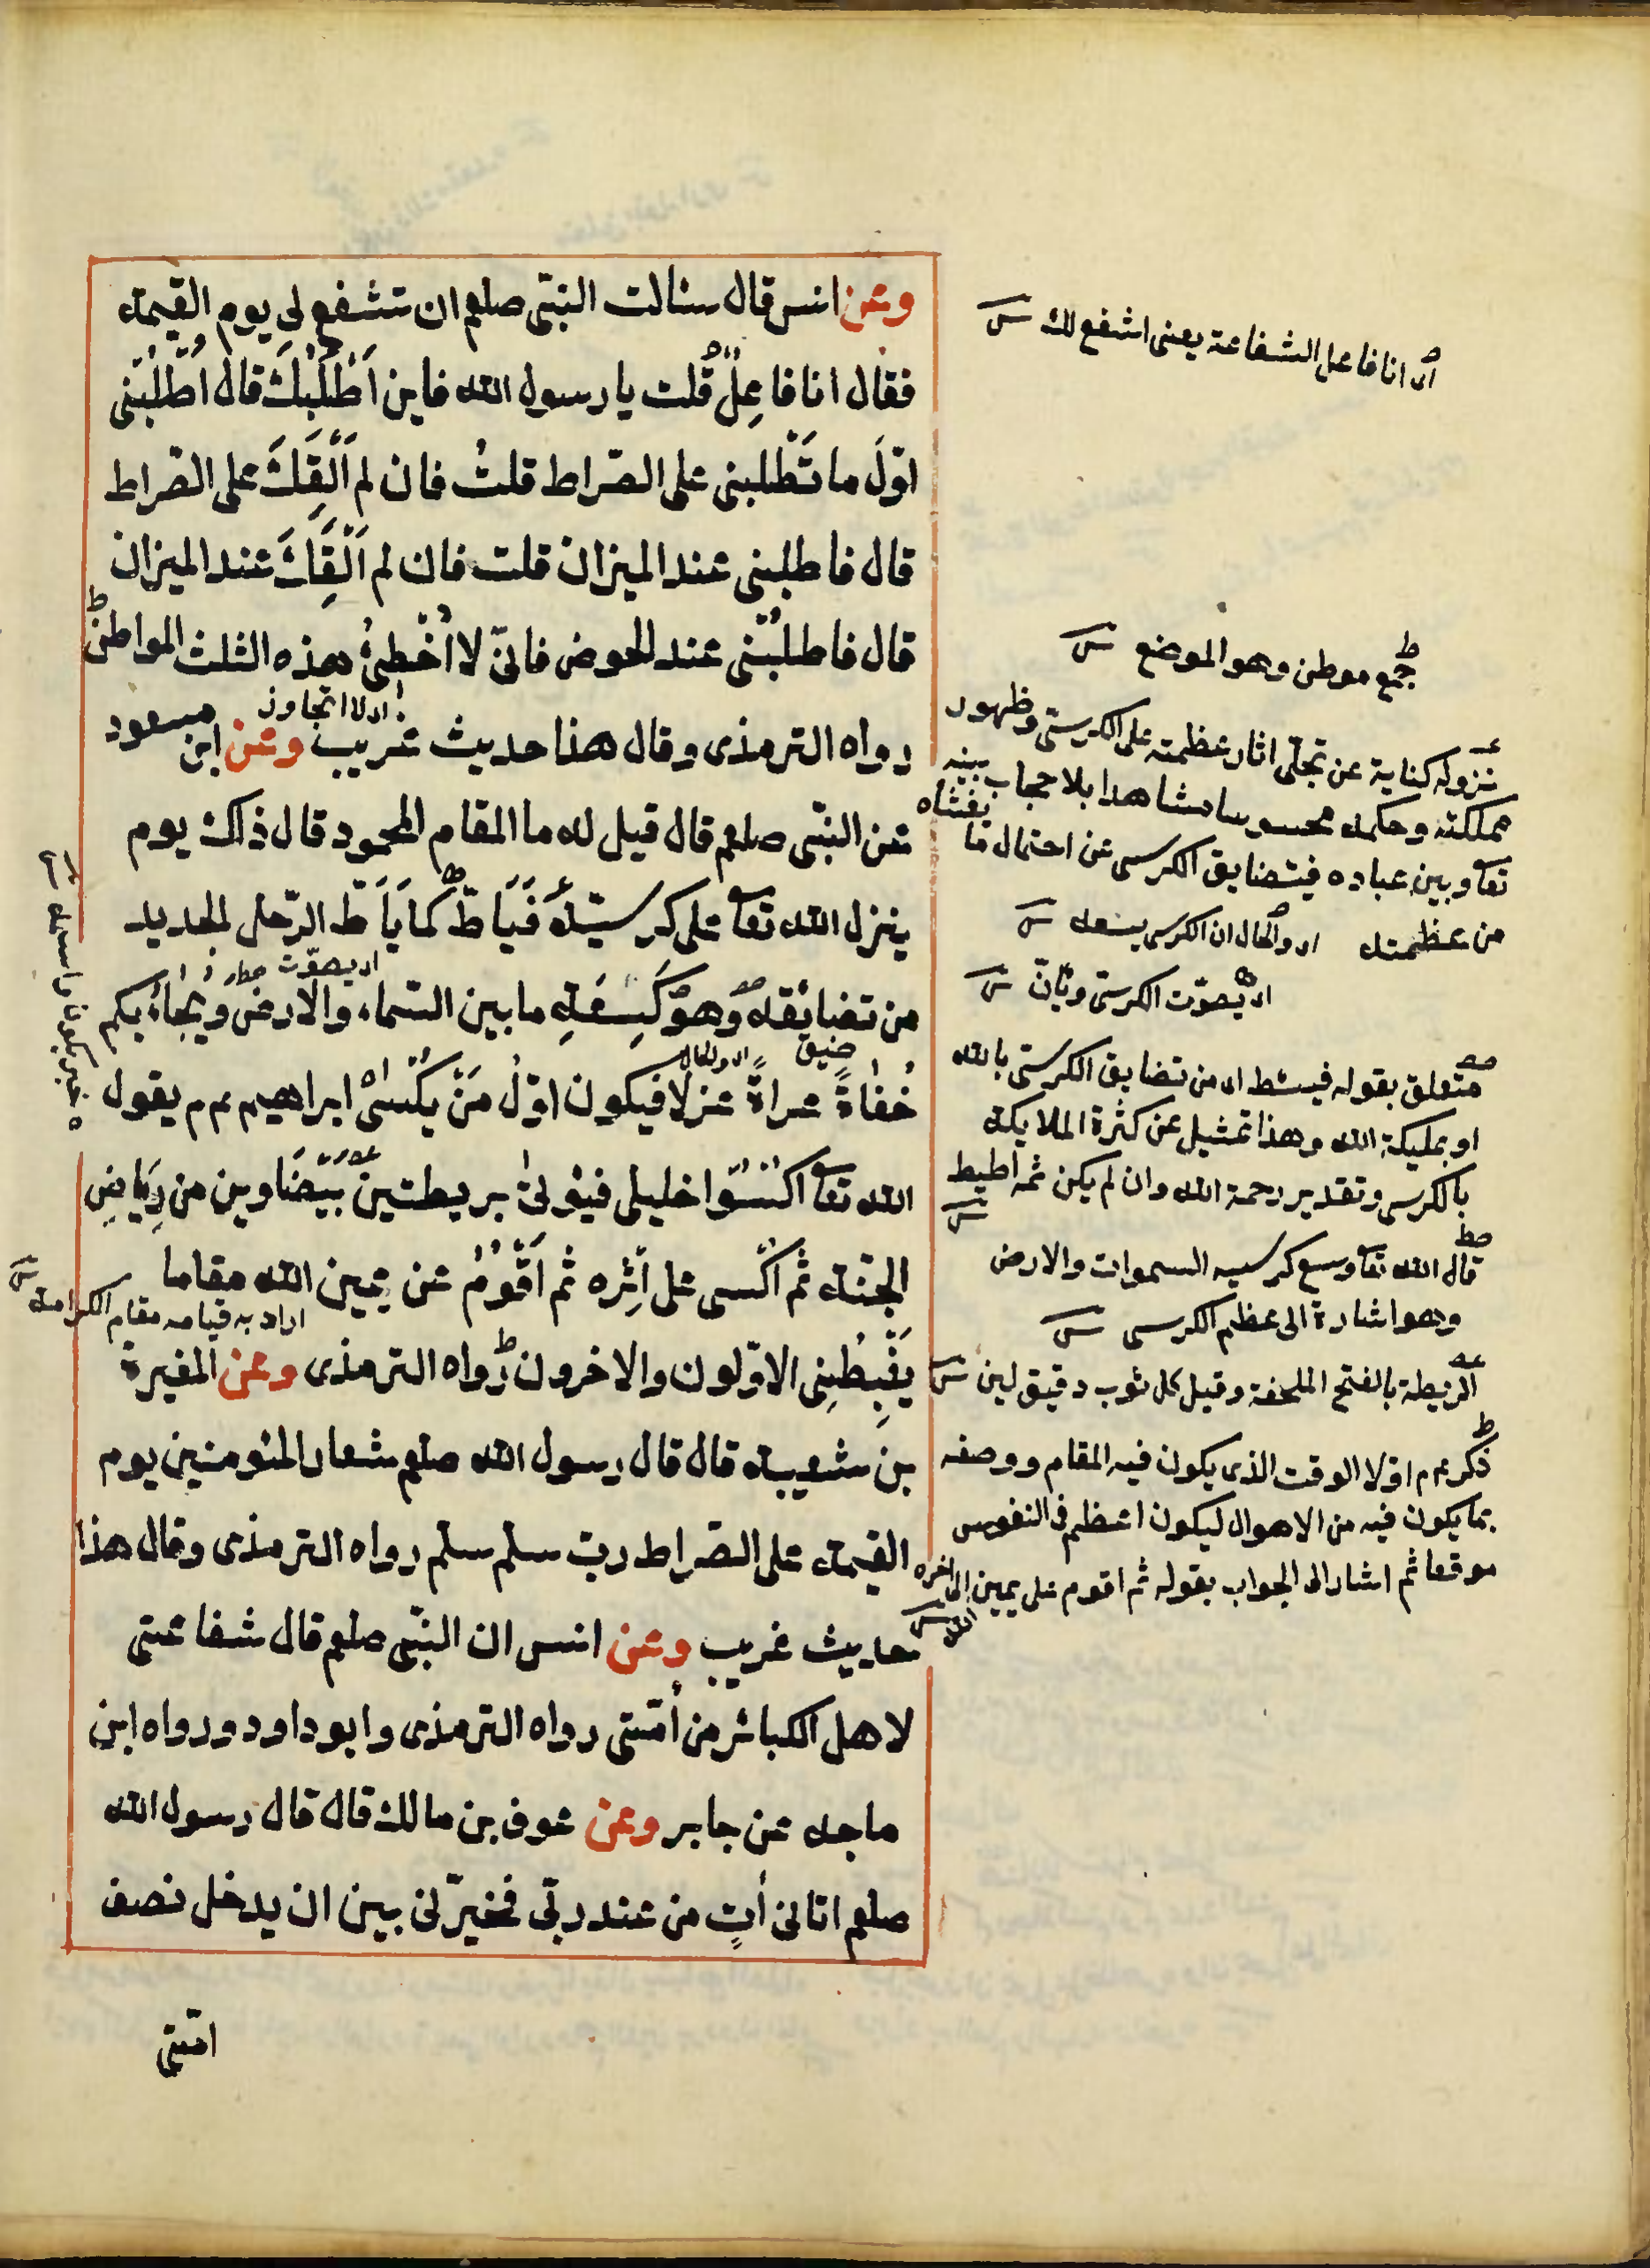 وعن انس قال سئالت النبى صلعم ان تشفع لى يوم القيمة
فقال انا فاعل قلت يا رسول الله فاين اطلبك قال اطلبنى
اول ما تطلبنى على الصراط قلت فان لم القك على الصراط
قال فاطلبنى عند الميزان قلت فان لم القك عند الميزان
قال فاطلبنى عند الحوض فانى لا اخطئ هذه الثلث المواطن
اى لا اتجاوز
رواه الترمذى وقال هذا حديث غريب وعن ابن مسعود
عن النبى صلعم قال قيل له ما المقام المحمود قال ذلك يوم
ينزل الله تعا على كرسيه فيأط كما يأط الرحل الجديد
اى يصوت
من تضائقه وهو كسعة ما بين السماء والارض ويجاء بكم
ضيق اى والحال
حفاة عراة غزلا فيكون اول من يكسى ابراهيم عم يقول
الله تعا اكسوا خليلى فيؤلى بريطتين بيضاوين من رياض
الجنة ثم اكسى على اثره ثم اقوم عن يمين الله مقاما
اراد به قيامه مقام الكرامة
يغبطنى الاولون والاخرون رواه الترمذى وعن المغيرة
بن شعيبة قال قال رسول الله صلعم شعار المؤمنين يوم
القيمة على الصراط رب سلم سلم رواه الترمذى وقال هذا
حديث غريب وعن انس ان النبى صلعم قال شفاعتى
لاهل الكبائر من امتى رواه الترمذى وابو داود ورواه ابن
ماجه عن جابر وعن عوف بن مالك قال قال رسول الله
صلعم اتانى أت من عند ربى فخيرنى بين ان يدخل نصف
امتى
اى انا فاعل الشفاعة يعنى اشفع لك
جمع موطن وهو الموضع
نزوله كناية عن تجلى اثار عظمته على الكرسى وظهور
مملكته وحكمه محسوسا مشاهدا بلا حجاب بينه
تعا وبين عباده فيتضايق الكرسى عن احتمال ما يغشاه
من عظمته اى والحال ان الكرسى يسعه
اى يصوت الكرسى
متعلق بقوله فيئط اى من تضايق الكرسى بالله
او بمليكة الله وهذا تمثيل عن كثرة الملايكة
بالكرسى وتقدير رحمة الله وان لم يكن ثمه اطيط
قال الله تعا وسع كرسيه السموات والارض
وهو اشارة الى عظم الكرسى
الريطة بالفتح الملحفة وقيل كل ثوب دقيق لين
ذكر عم اولا الوقت الذى يكون فيه المقام ووصفه
بما يكون فيه من الاهوال ليكون اعظم فى النفوس
موقعا ثم اشار الى الجواب بقوله ثم اقوم على يمين الى اخره